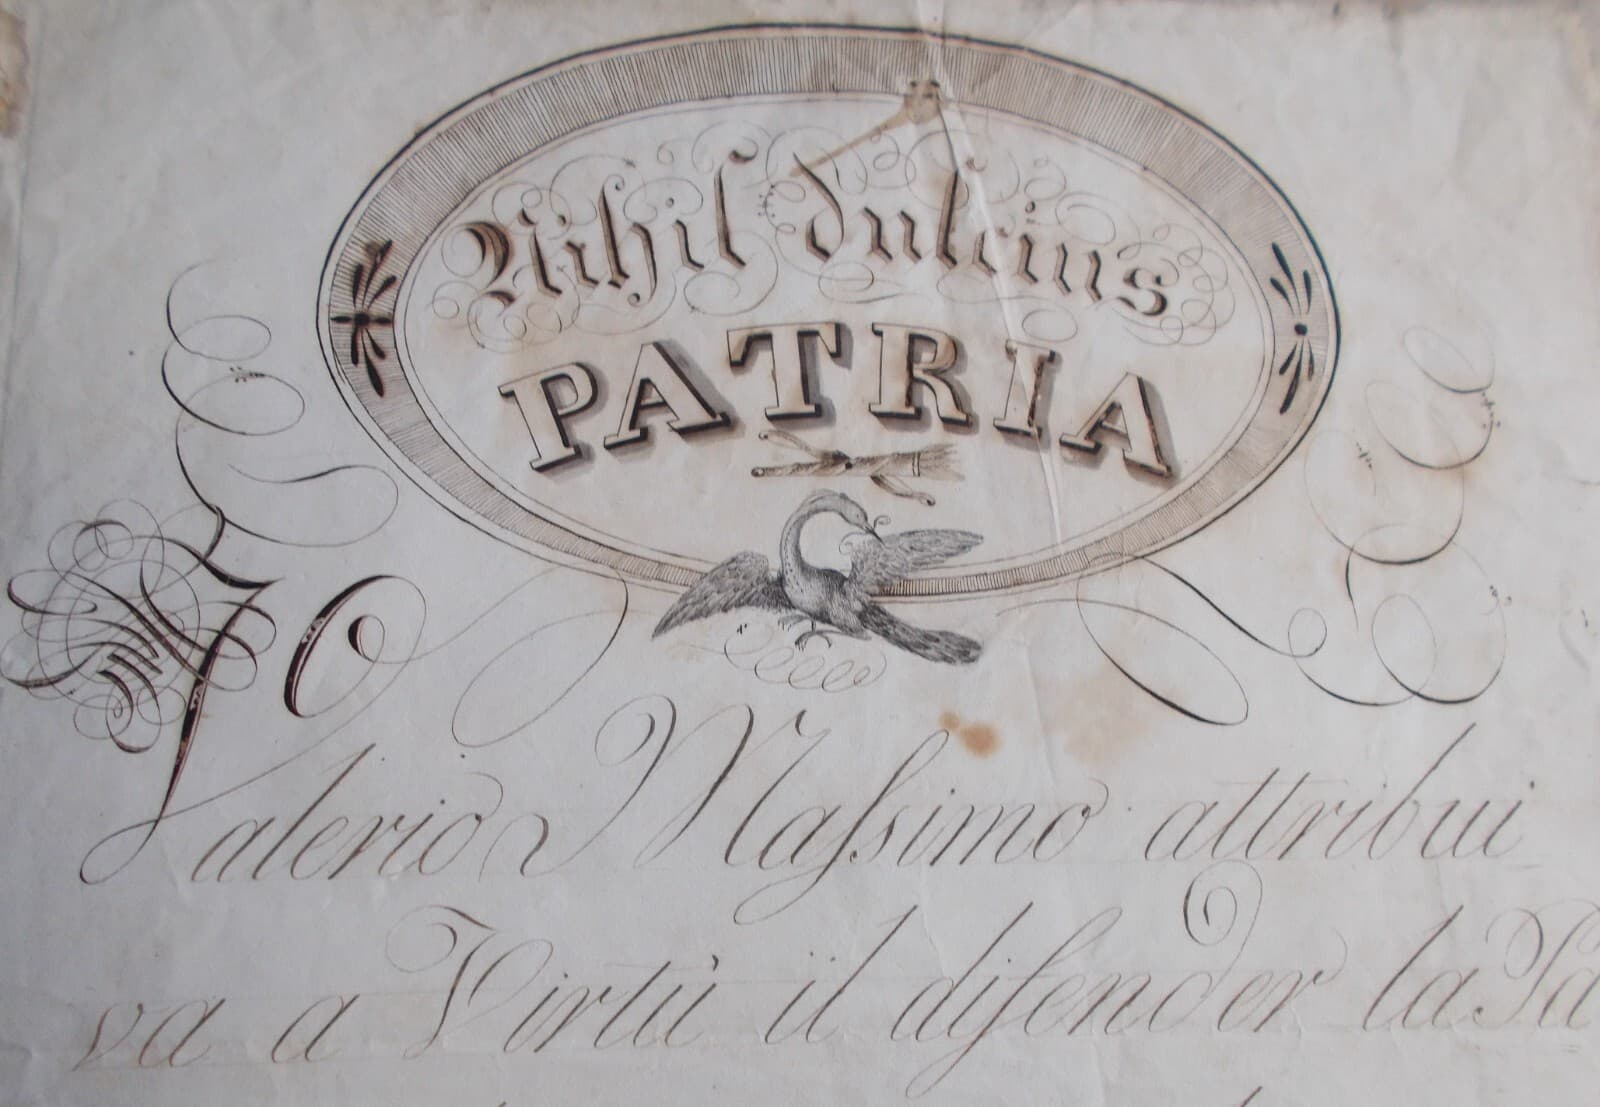 Nihil dulcius
PATRIA
Jo
Valerio Maſsimo attribui
va a Virtù il difender la Pa